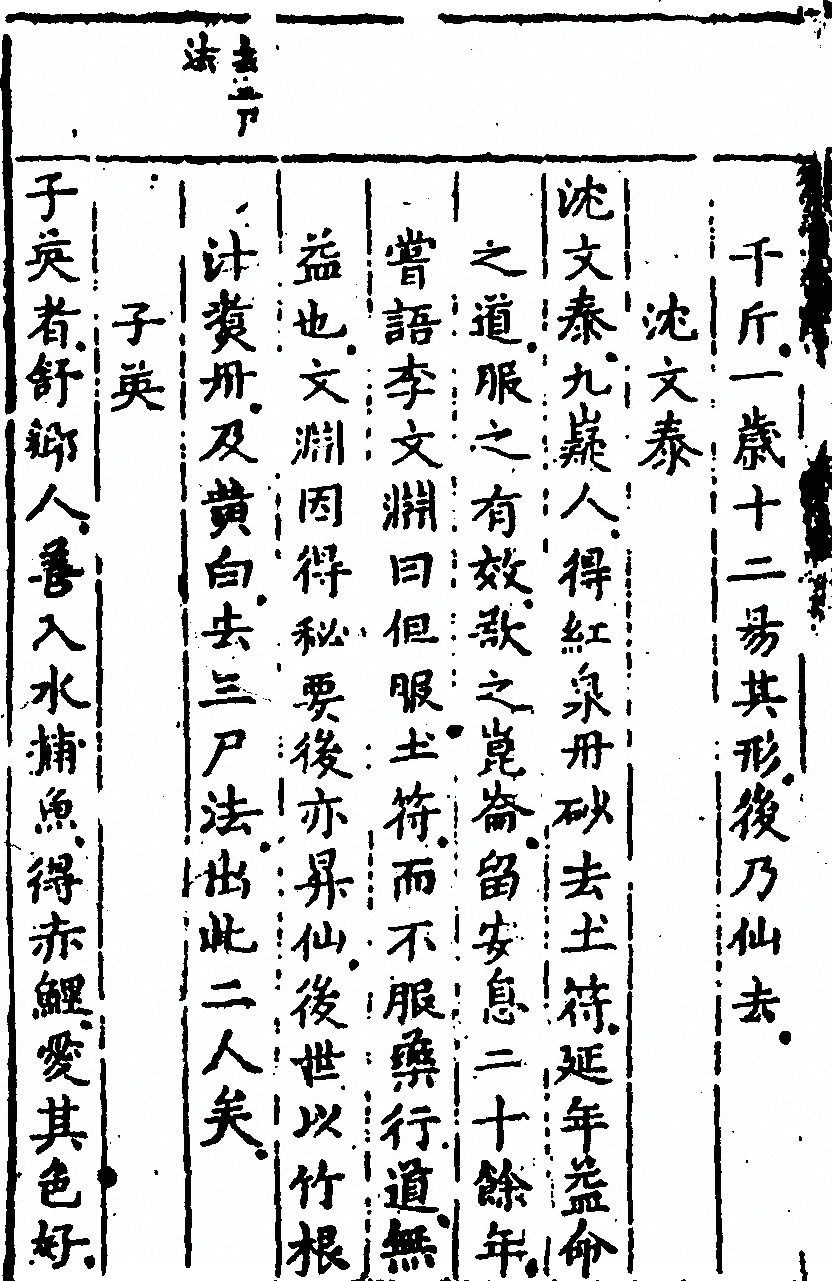 千斤一歳十二易其形後乃仙去
沈文泰
沈文泰九嶷人得紅泉丹砂去土符延年益命
之道服之有效欲之崑崙留安息二十餘年
嘗語李文淵曰但服土符而不服藥行道無
益也文淵因得秘要後亦昇仙後世以竹根
汁煑丹及黄白去三尸法出此二人矣
子英
子英者舒鄉人善入水捕魚得赤鯉愛其色好
去三尸
法